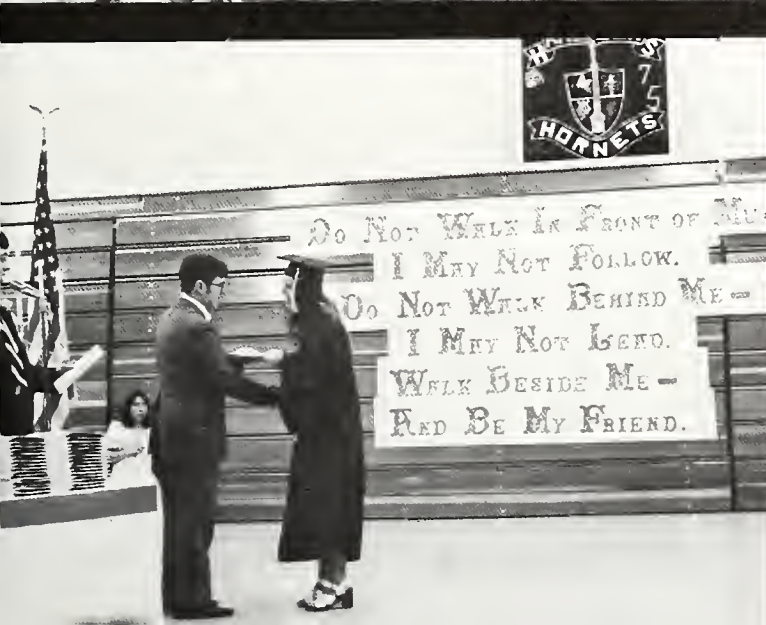 75
HORNETS
Do Not Walk In Front of
I May Not Follow.
Do Not Walk Behind Me—
I May Not Lead.
Walk Beside Me—
And Be My Friend.